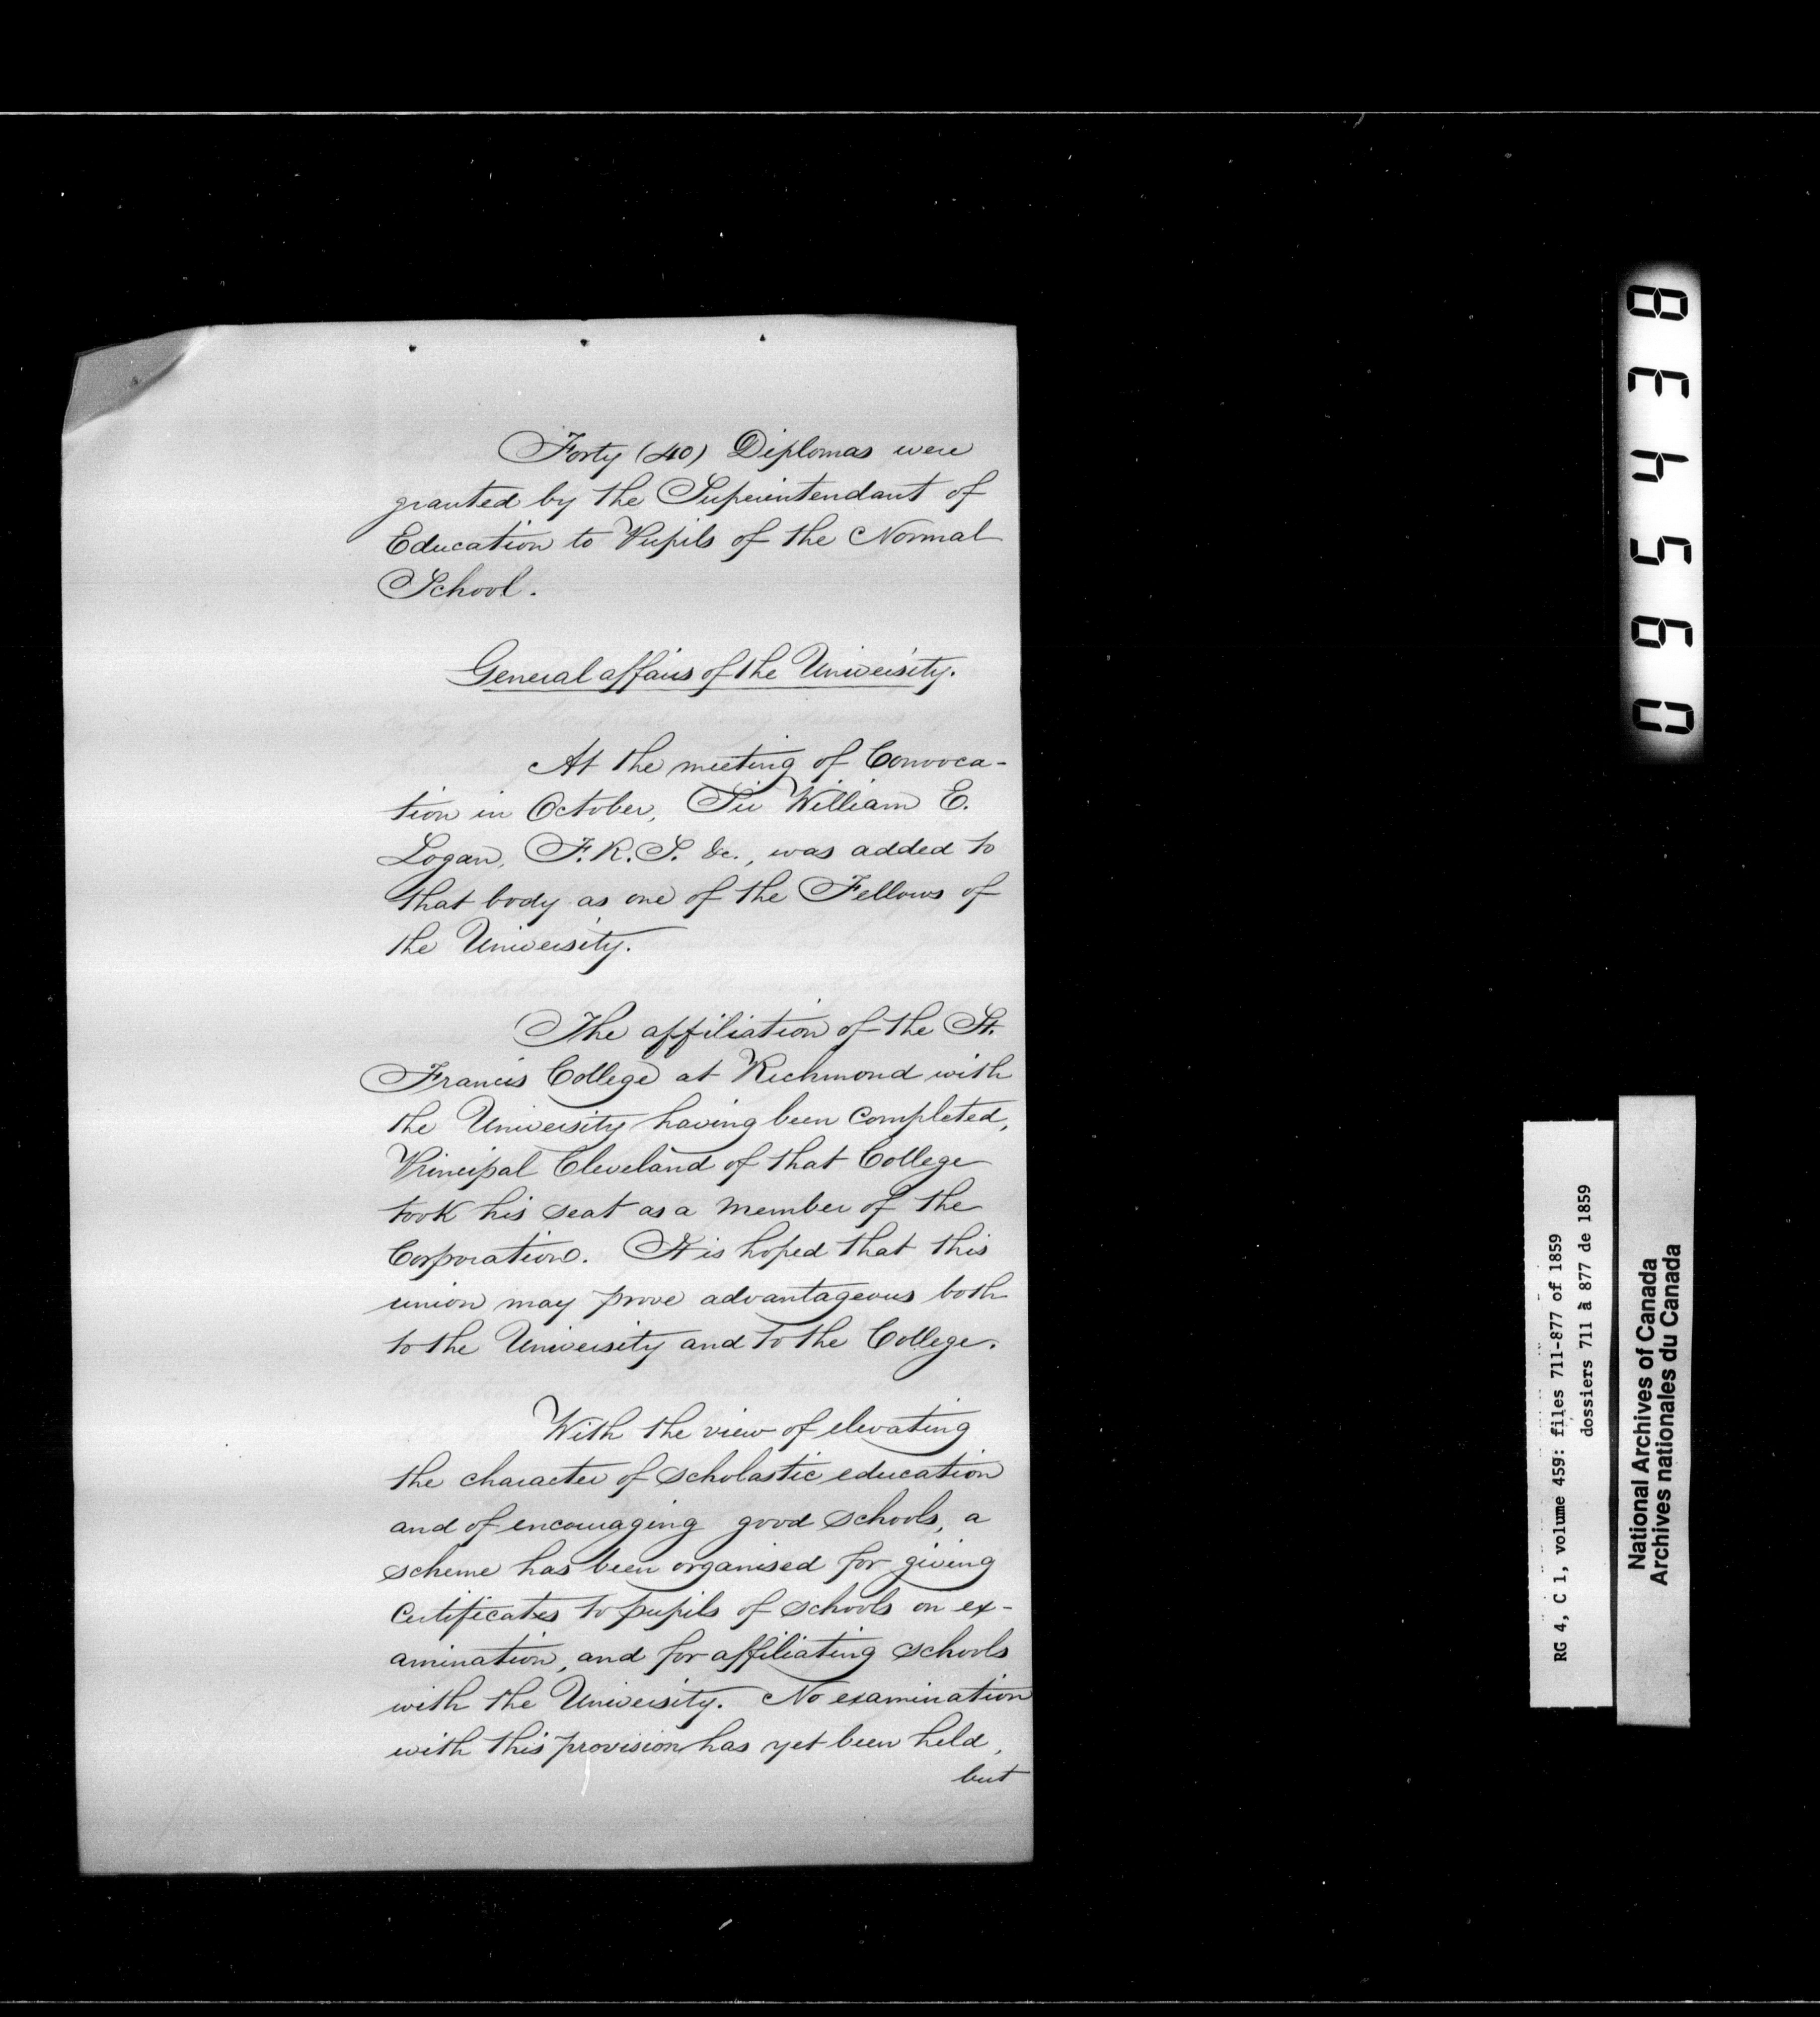 Forty (40) Diplomas were
granted by the Superintendant of
Education to Pupils of the Normal
School.
General affairs of the University.
At the meeting of Convoca-
tion in October, Sir William E.
Logan, F.R.S. &c., was added to
that body as one of the Fellows of
the University.
The affiliation of the St.
Francis College at Richmond with
the University having been completed,
Principal Cleveland of that College
took his seat as a member of the
Corporation. It is hoped that this
union may prove advantageous both
to the University and to the College.
With the view of elevating
the character of scholastic education
and of encouraging good schools, a
scheme has been organised for giving
Certificates to pupils of schools on ex-
amination, and for affiliating schools
with the University. No examination
with this provision has yet been held,
but
834560
RG 4, C 1, volume 459: files 711-877 of 1859
dossiers 711 à 877 de 1859
National Archives of Canada
Archives nationales du Canada